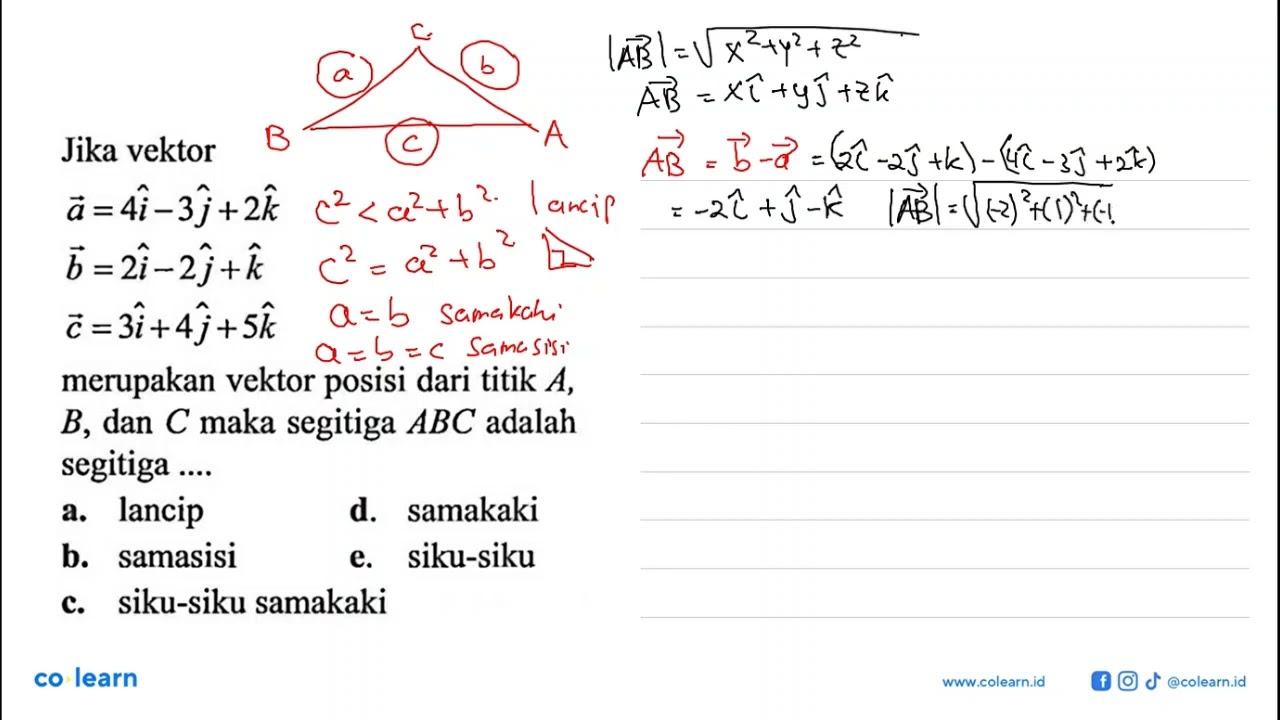 Jika vektor
a⃗ = 4î − 3ĵ + 2k̂
b⃗ = 2î − 2ĵ + k̂
c⃗ = 3î + 4ĵ + 5k̂
merupakan vektor posisi dari titik A,
B, dan C maka segitiga ABC adalah
segitiga ....
a. lancip
b. samasisi
c. siku-siku samakaki
d. samakaki
e. siku-siku
C
a b
B c A
c² < a² + b² lancip
c² = a² + b²
a = b samakaki
a = b = c samasisi
|AB⃗| = √x² + y² + z²
AB⃗ = xî + yĵ + zk̂
AB⃗ = b⃗ − a⃗ = (2î − 2ĵ + k) − (4î − 3ĵ + 2k̂)
= −2î + ĵ − k̂ |AB⃗| = √(−2)² + (1)² + (−1
co learn
www.colearn.id
@colearn.id